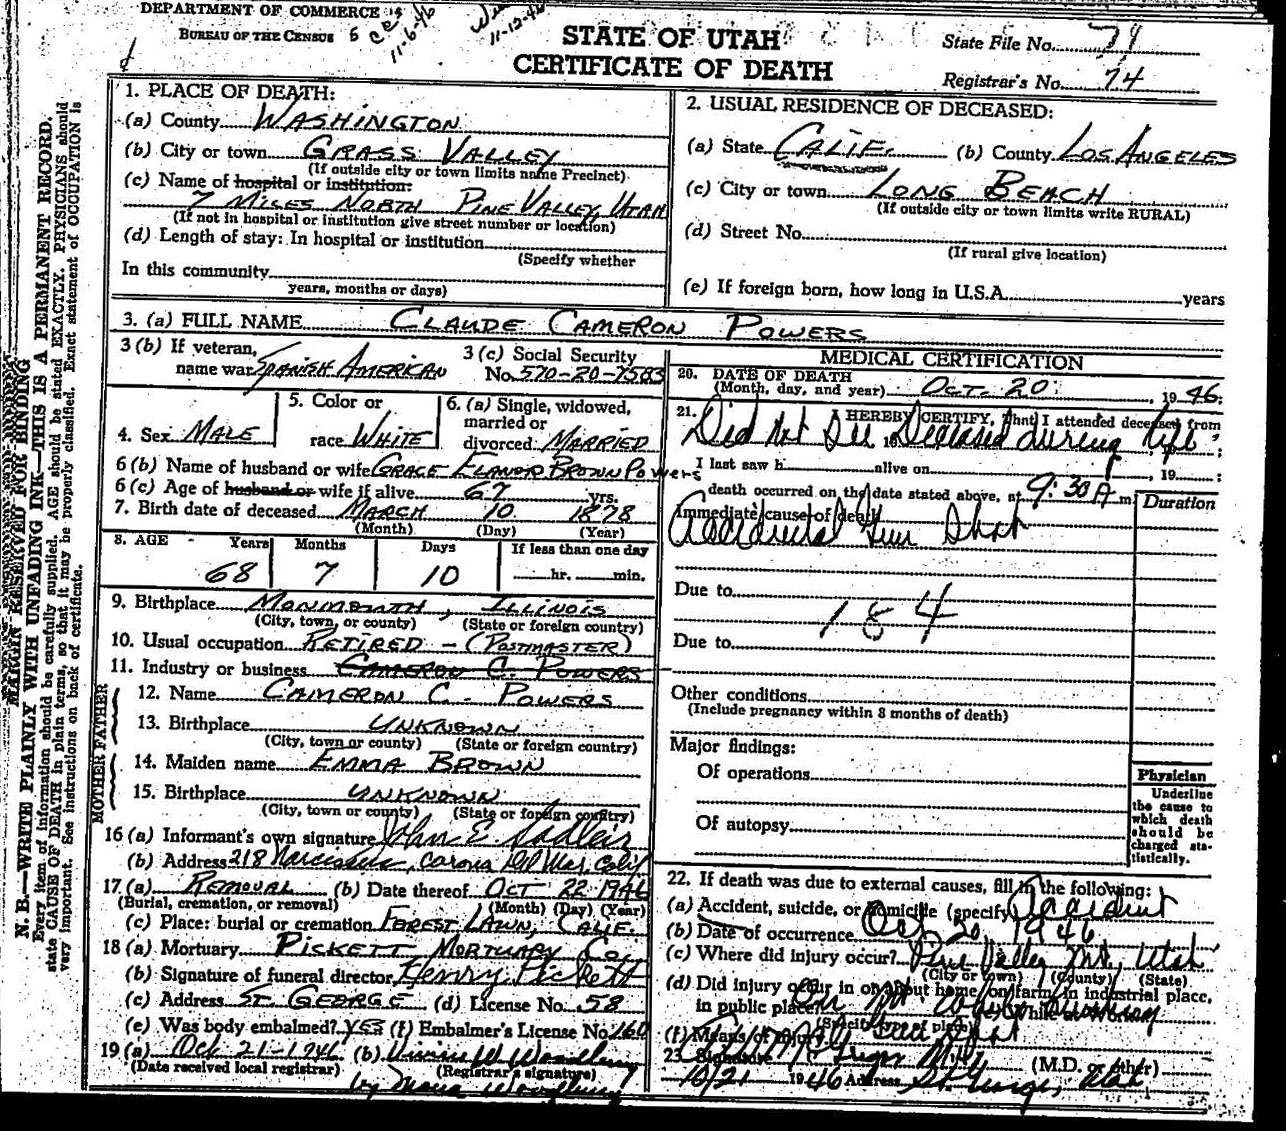 DEPARTMENT OF COMMERCE
BUREAU OF THE CENSUS
11-6-46
11-12-46
STATE OF UTAH
CERTIFICATE OF DEATH
State File No. 79
Registrar's No. 74
MARGIN RESERVED FOR BINDING
N. B.—WRITE PLAINLY WITH UNFADING INK—THIS IS A PERMANENT RECORD.
Every item of information should be carefully supplied. AGE should be stated EXACTLY. PHYSICIANS should
state CAUSE OF DEATH in plain terms, so that it may be properly classified. Exact statement of OCCUPATION is
very important. See instructions on back of certificate.
1. PLACE OF DEATH:
(a) County WASHINGTON
(b) City or town GRASS VALLEY
(If outside city or town limits name Precinct)
(c) Name of hospital or institution:
7 MILES NORTH PINE VALLEY, UTAH
(If not in hospital or institution give street number or location)
(d) Length of stay: In hospital or institution
(Specify whether
In this community
years, months or days)
2. USUAL RESIDENCE OF DECEASED:
(a) State CALIF. (b) County LOS ANGELES
(c) City or town LONG BEACH
(If outside city or town limits write RURAL)
(d) Street No.
(If rural give location)
(e) If foreign born, how long in U.S.A. years
3. (a) FULL NAME CLAUDE CAMERON POWERS
3 (b) If veteran, name war SPANISH AMERICAN
3 (c) Social Security No. 570-20-7583
4. Sex MALE
5. Color or race WHITE
6. (a) Single, widowed, married or divorced MARRIED
6 (b) Name of husband or wife GRACE ELANOR BROWN POWERS
6 (c) Age of husband or wife if alive 67 yrs.
7. Birth date of deceased MARCH 10 1878
(Month) (Day) (Year)
8. AGE Years Months Days If less than one day
68 7 10 hr. min.
9. Birthplace MONMOUTH, ILLINOIS
(City, town, or county) (State or foreign country)
10. Usual occupation RETIRED - (POSTMASTER)
11. Industry or business CAMERON C. POWERS
FATHER
12. Name CAMERON C. POWERS
13. Birthplace UNKNOWN
(City, town or county) (State or foreign country)
MOTHER
14. Maiden name EMMA BROWN
15. Birthplace UNKNOWN
(City, town or county) (State or foreign country)
16 (a) Informant's own signature John E. Sadleir
(b) Address 218 Narcissus, Corona Del Mar, Calif
17 (a) REMOVAL (b) Date thereof OCT 22 1946
(Burial, cremation, or removal) (Month) (Day) (Year)
(c) Place: burial or cremation FOREST LAWN, CALIF.
18 (a) Mortuary PICKETT MORTUARY CO.
(b) Signature of funeral director Henry Pickett
(c) Address ST. GEORGE (d) License No. 58
(e) Was body embalmed? YES (f) Embalmer's License No. 160
19 (a) Oct 21-1946 (b) W. Woodbury
(Date received local registrar) (Registrar's signature)
by Woodbury
MEDICAL CERTIFICATION
20. DATE OF DEATH
(Month, day, and year) OCT. 20, 1946
21. I HEREBY CERTIFY, That I attended deceased from
Did Not See Deceased during life
I last saw h alive on , 19 ;
death occurred on the date stated above, at 9:30 A m.
Duration
Immediate cause of death
Accidental Gun Shot
Due to
184
Due to
Other conditions
(Include pregnancy within 3 months of death)
Major findings:
Of operations
Of autopsy
Physician
Underline the cause to which death should be charged statistically.
22. If death was due to external causes, fill in the following:
(a) Accident, suicide, or homicide (specify) Accident
(b) Date of occurrence Oct 20, 1946
(c) Where did injury occur? Pine Valley Mt, Utah
(City or town) (County) (State)
(d) Did injury occur in or about home, on farm, in industrial place,
in public place? On Mt.
(Specify type of place)
(f) Means of injury Gun Shot
23. Signature (M.D. or other)
10/21 1946 Address St George, Utah